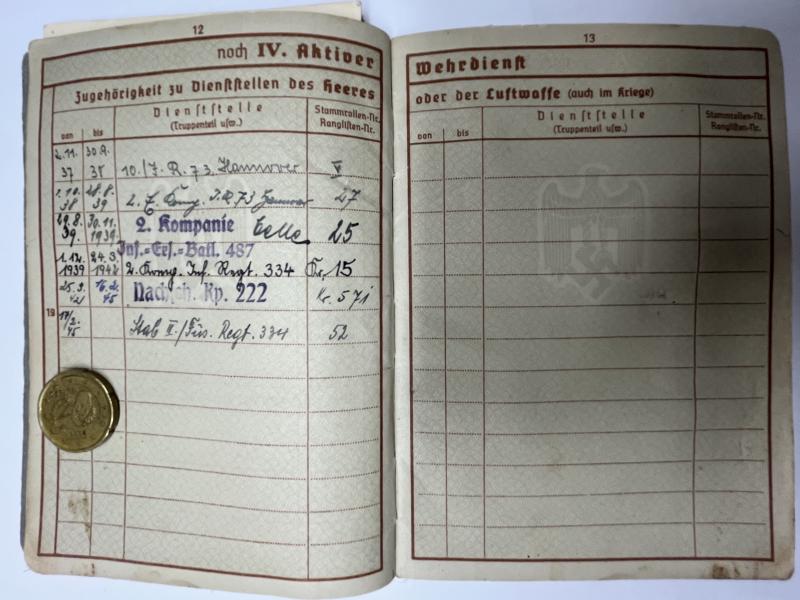 12
noch IV. Aktiver
Zugehörigkeit zu Dienststellen des Heeres
von bis Dienststelle (Truppenteil usw.) Stammrollen-Nr. Ranglisten-Nr.
2.11. 37 30.9. 38 10./J.R.73. Hannover V
1.10. 38 28.8. 39 2. E. Komp. J.R 73 Hannover 27
29.8. 39. 30.11. 1939 2. Kompanie Celle 25
Inf.=Ers.=Batl. 487
1.12. 1939 24.3. 1942 2. Komp. Inf. Regt. 334 Nr. 15
25.3. 42 16.2. 45 Nachsch. Kp. 222 Nr. 571
19 17/2. 45 Stab II./Füs. Regt. 334 52
13
Wehrdienst
oder der Luftwaffe (auch im Kriege)
von bis Dienststelle (Truppenteil usw.) Stammrollen-Nr. Ranglisten-Nr.